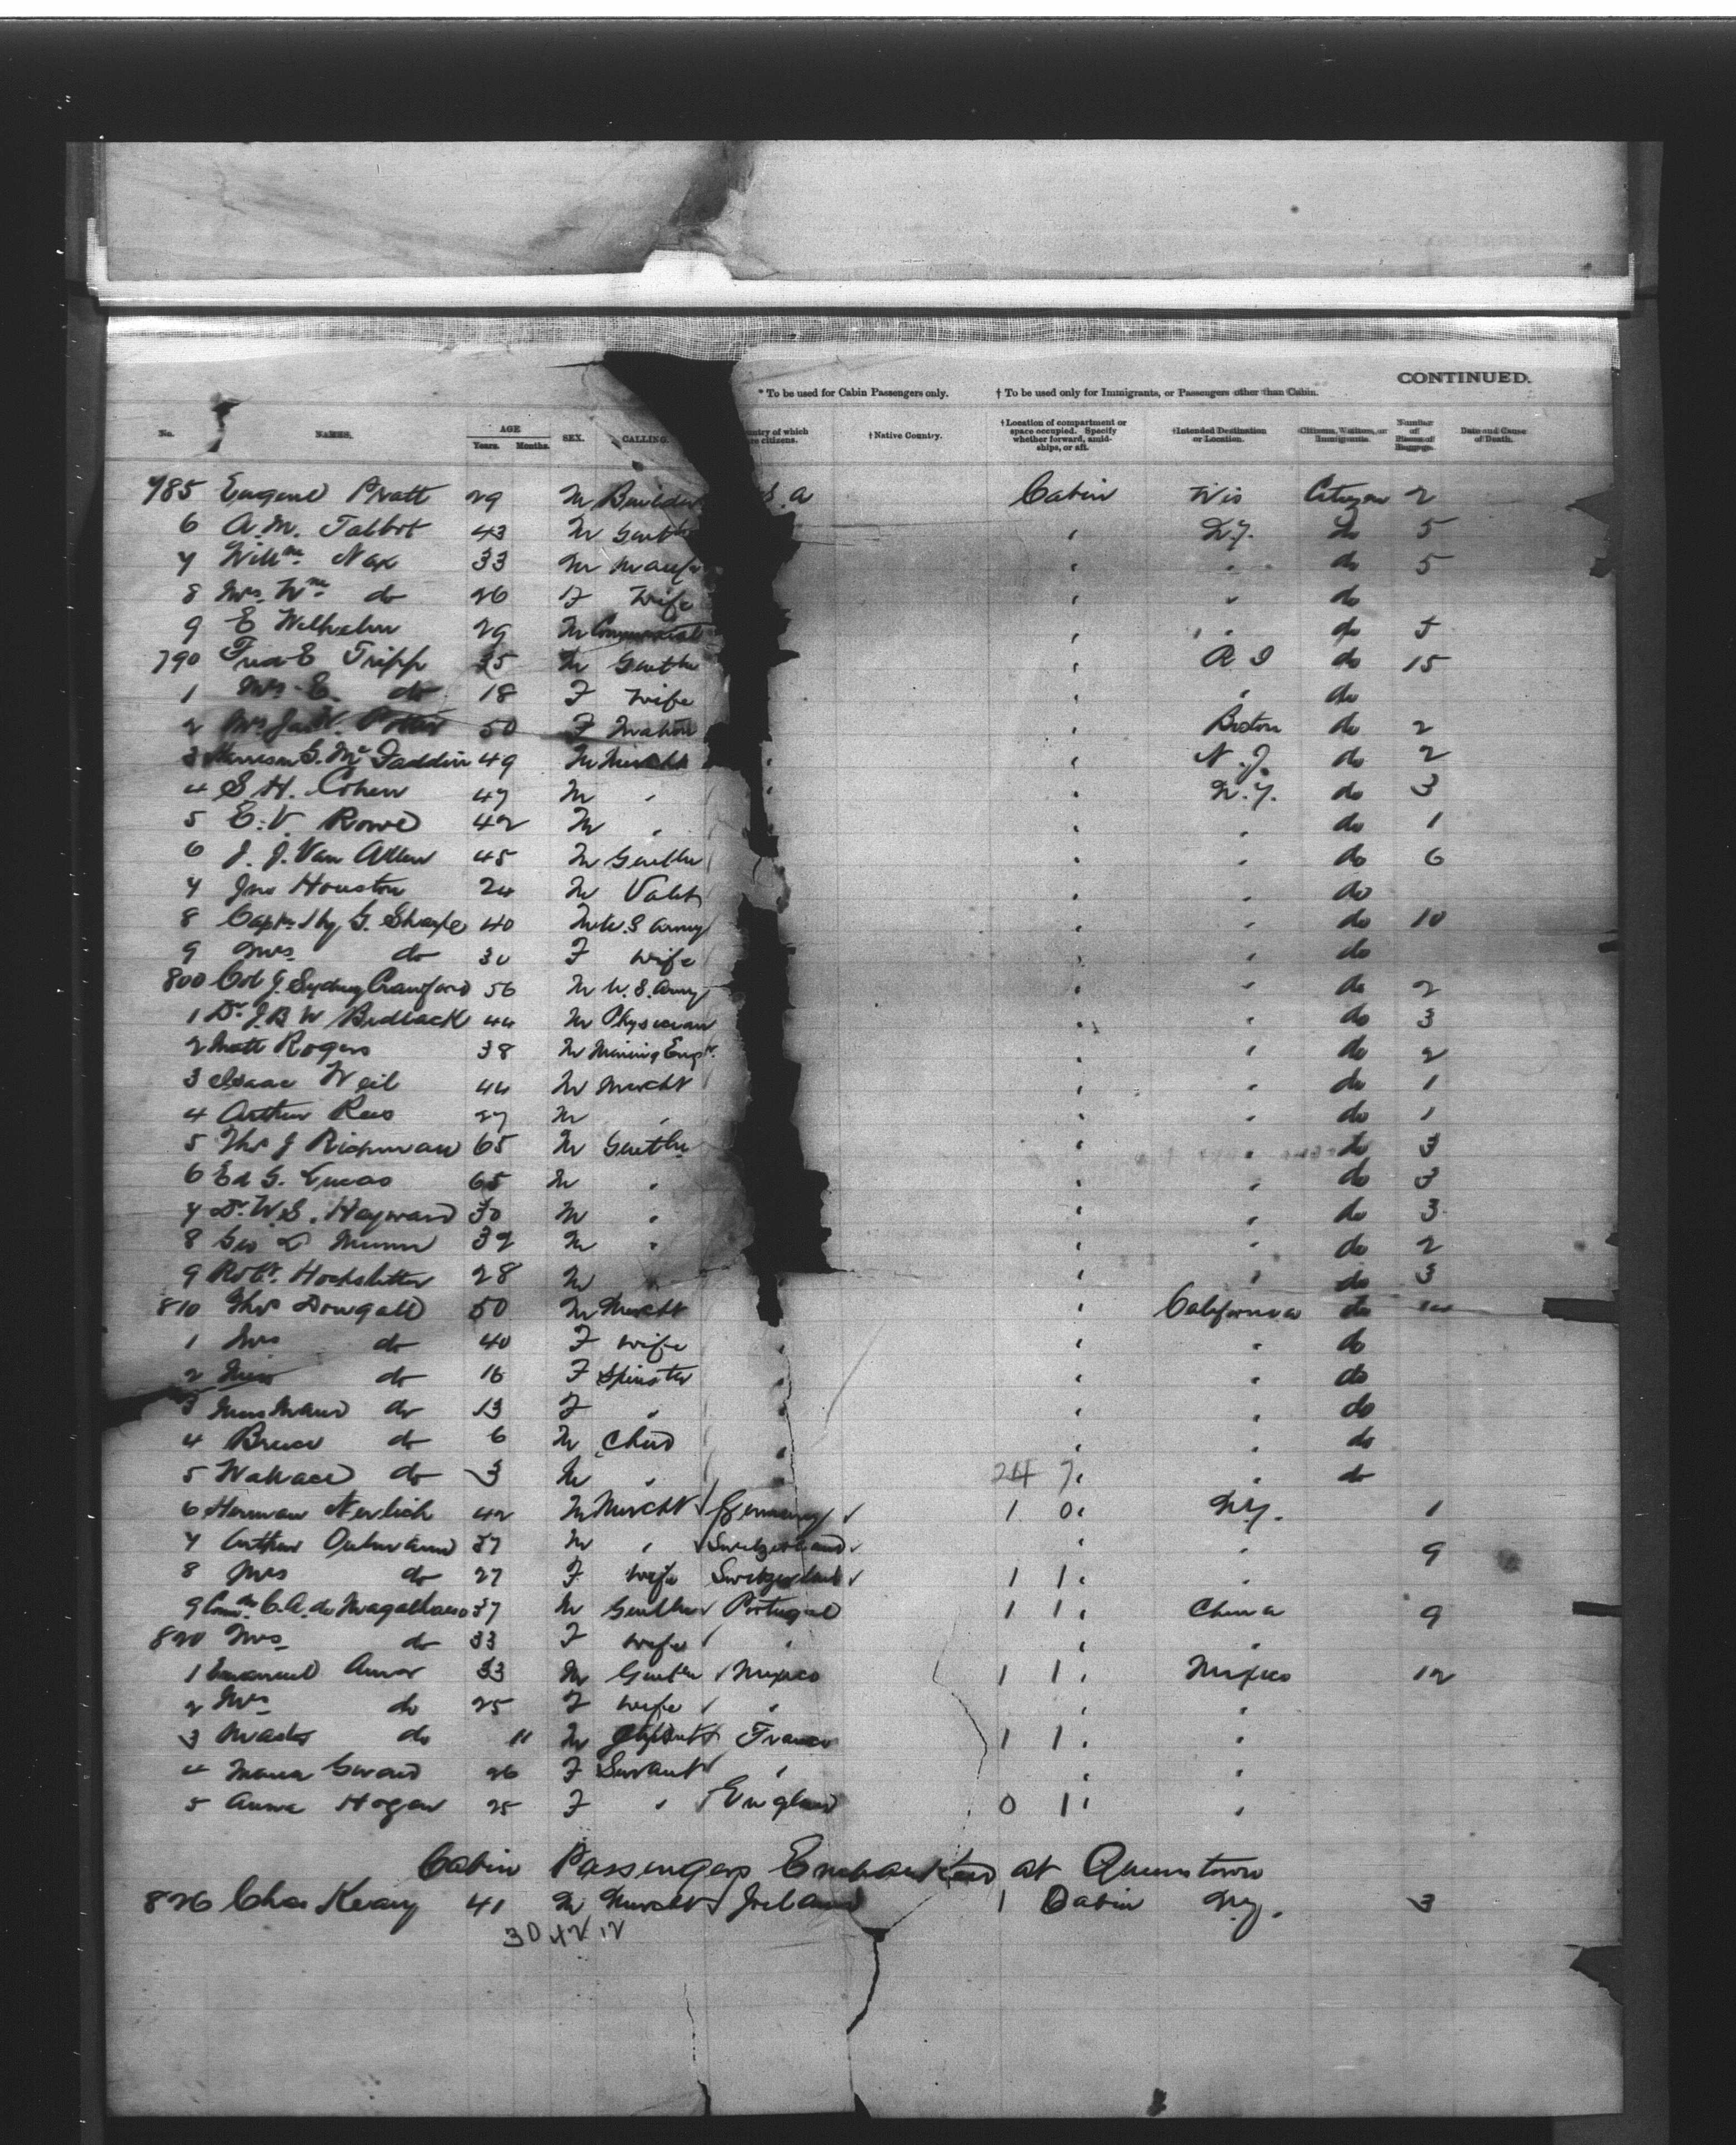 CONTINUED.
* To be used for Cabin Passengers only. † To be used only for Immigrants, or Passengers other than Cabin.
No. NAMES. AGE Years. Months. SEX. CALLING. ntry of which re citizens. † Native Country. † Location of compartment or space occupied. Specify whether forward, amidships, or aft. † Intended Destination or Location. Citizens, Visitors, or Immigrants. Number of Pieces of Baggage. Date and Cause of Death.
785 Eugene Pratt 29 M Builder S. a Cabin Wis Citizen 2
6 A. M. Talbot 43 M Gentln " N.Y. do 5
7 Willm Nax 33 M Manfr " " do 5
8 Mrs. Wm do 26 F Wife " " do
9 E Wilhelm 29 M " " do 5
790 Fred E Tripp 35 M Gentln " R I do 15
1 Mrs E. do 18 F Wife " " do
2 Mrs Jas W. Potter 50 F Matron " Boston do 2
3 Harrison G. McFaddin 49 M Mercht " " N.J. do 2
4 S H. Cohen 47 M " " " N.Y. do 3
5 E. V Rowe 42 M " " " do 1
6 J. J. Van Allen 45 M Gentln " " do 6
7 Jno Houston 24 M Valet " " do
8 Captn Hy G. Sharpe 40 M U. S Army " " do 10
9 Mrs do 30 F Wife " " do
800 Col J. Sydney Crawford 56 M U. S. Army " " do 2
1 Dr J. B W Bedlack 44 M Physician " " do 3
2 Matt Rogers 38 M Mining Engr. " " do 2
3 Isaac Weil 44 M Mercht " " do 1
4 Arthur Rees 27 M " " " do 1
5 Thos J Richman 65 M Gentln " " do 3
6 Ed G. Lucas 65 M " " " do 3
7 Dr. W. S. Hayward 30 M " " " do 3
8 Geo D Munn 32 M " " " do 2
9 Robt. Hochstetter 28 M " " " do 3
810 Thos Dougall 50 M Mercht " California do
1 Mrs do 40 F Wife " " " do
2 Miss do 16 F Spinster " " " do
3 Miss Maud do 13 F " " " " do
4 Bruce do 6 M Child " " " do
5 Wallace do 3 M " " 24 7 " " do
6 Herman Nerlich 42 M Mercht Germany 1 0 " N.Y. 1
7 Arthur 37 M " Switzerland " " 9
8 Mrs do 27 F Wife Switzerland 1 1 " "
9 C. A. de Magalhaes 37 M Gentln Portugal 1 1 " China 9
820 Mrs do 33 F Wife " " "
1 Emanuel Amor 33 M Gentln Mexico 1 1 " Mexico 12
2 Mrs do 25 F Wife " " "
3 Master do 11 M France 1 1 " "
4 Maria 26 F Servant " " "
5 Anna Hogan 25 F " England 0 1 " "
Cabin Passengers Embarked at Queenstown
826 Chas Keary 41 M Mercht Ireland 1 Cabin N.Y. 3
30 42 12